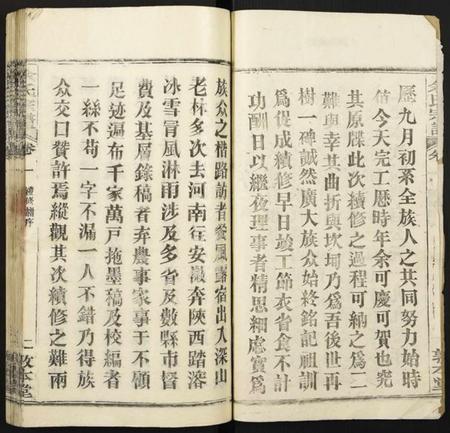 歷九月初系全族人之共同努力始時
偕今天完工曆時年余可慶可賀也究
其原牒此次續修之過程可納之爲二
難與幸其曲折與坎坷乃爲吾後世再
樹一碑誠然廣大族众始終銘記祖訓
爲促成續修早日竣工節衣省食不計
功酬日以繼夜理事者精思細慮實爲
族众之楷路訪者餐風露宿出入深山
老林多次去河南徃安徽奔陝西踏溶
冰雪冐風淋雨涉及多省及數縣市督
費及基層錄稿者弃農事家事于不顧
足迹遍布千家萬戸拖墨稿及校編者
一絲不苟一字不漏一人不錯乃得族
众交口贊許焉縱觀其次續修之難兩
卷一
二敦本堂